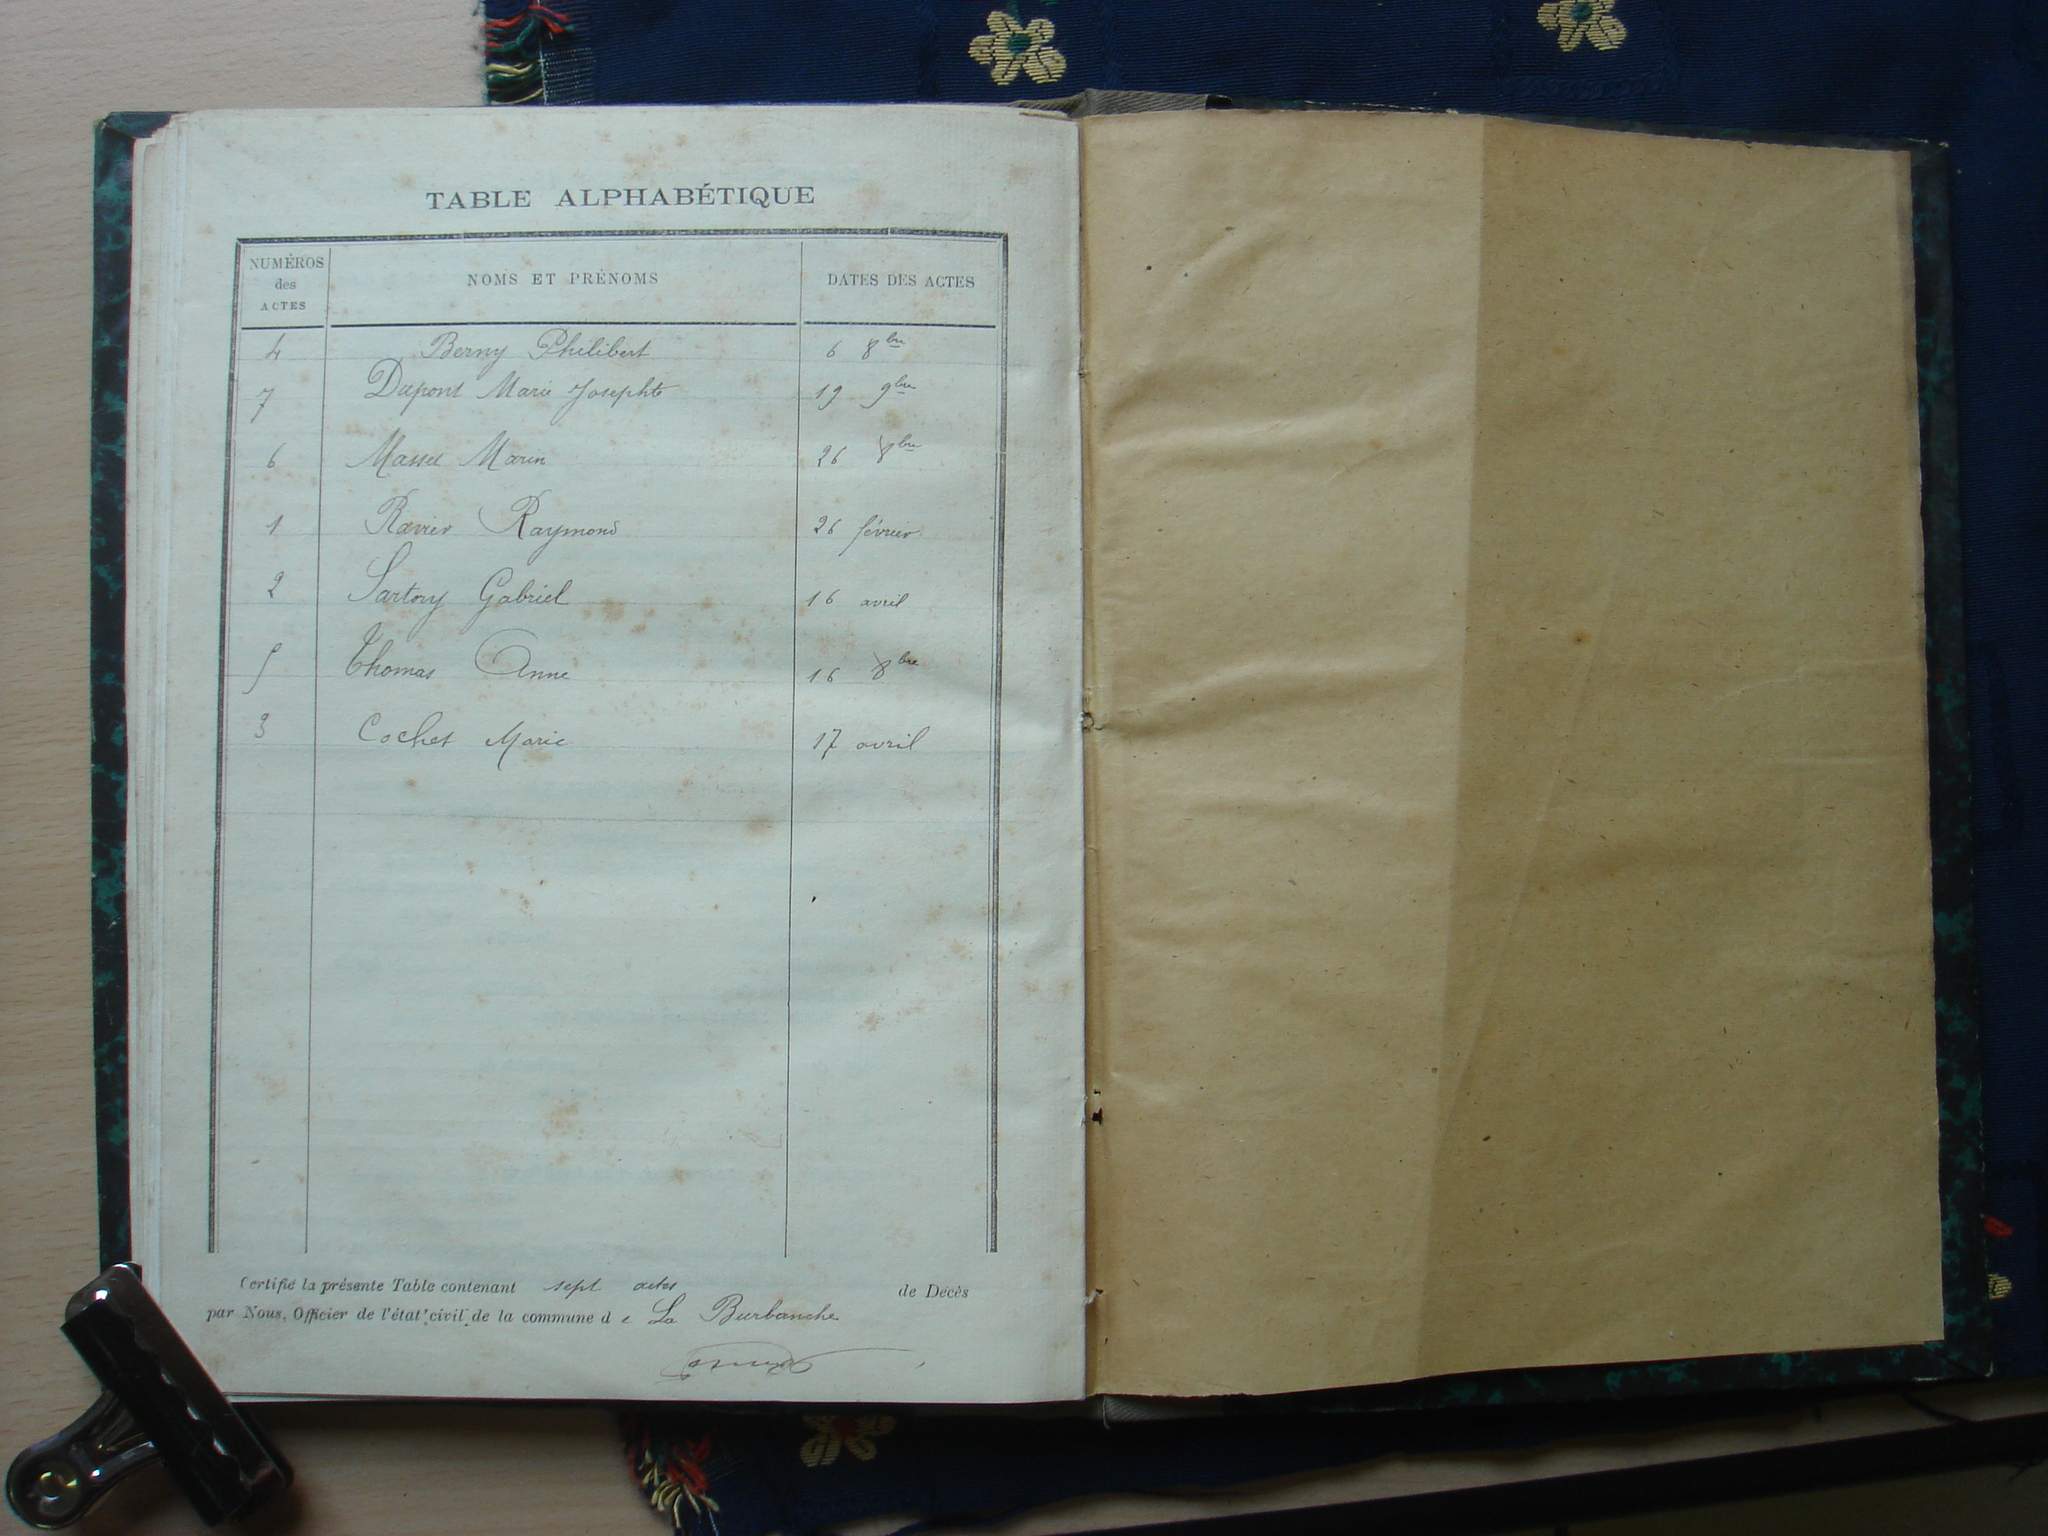 TABLE ALPHABÉTIQUE
NUMÉROS des ACTES NOMS ET PRÉNOMS DATES DES ACTES
4 Berny Philibert 6 8bre
7 Dupont Marie Josephte 19 9bre
6 Massel Marin 26 8bre
1 Ravier Raymond 26 février
2 Sartory Gabriel 16 avril
5 Thomas Anne 16 8bre
3 Cochet Marie 17 avril
Certifié la présente Table contenant sept actes de Décès
par Nous, Officier de l'état civil de la commune d e La Burbanche